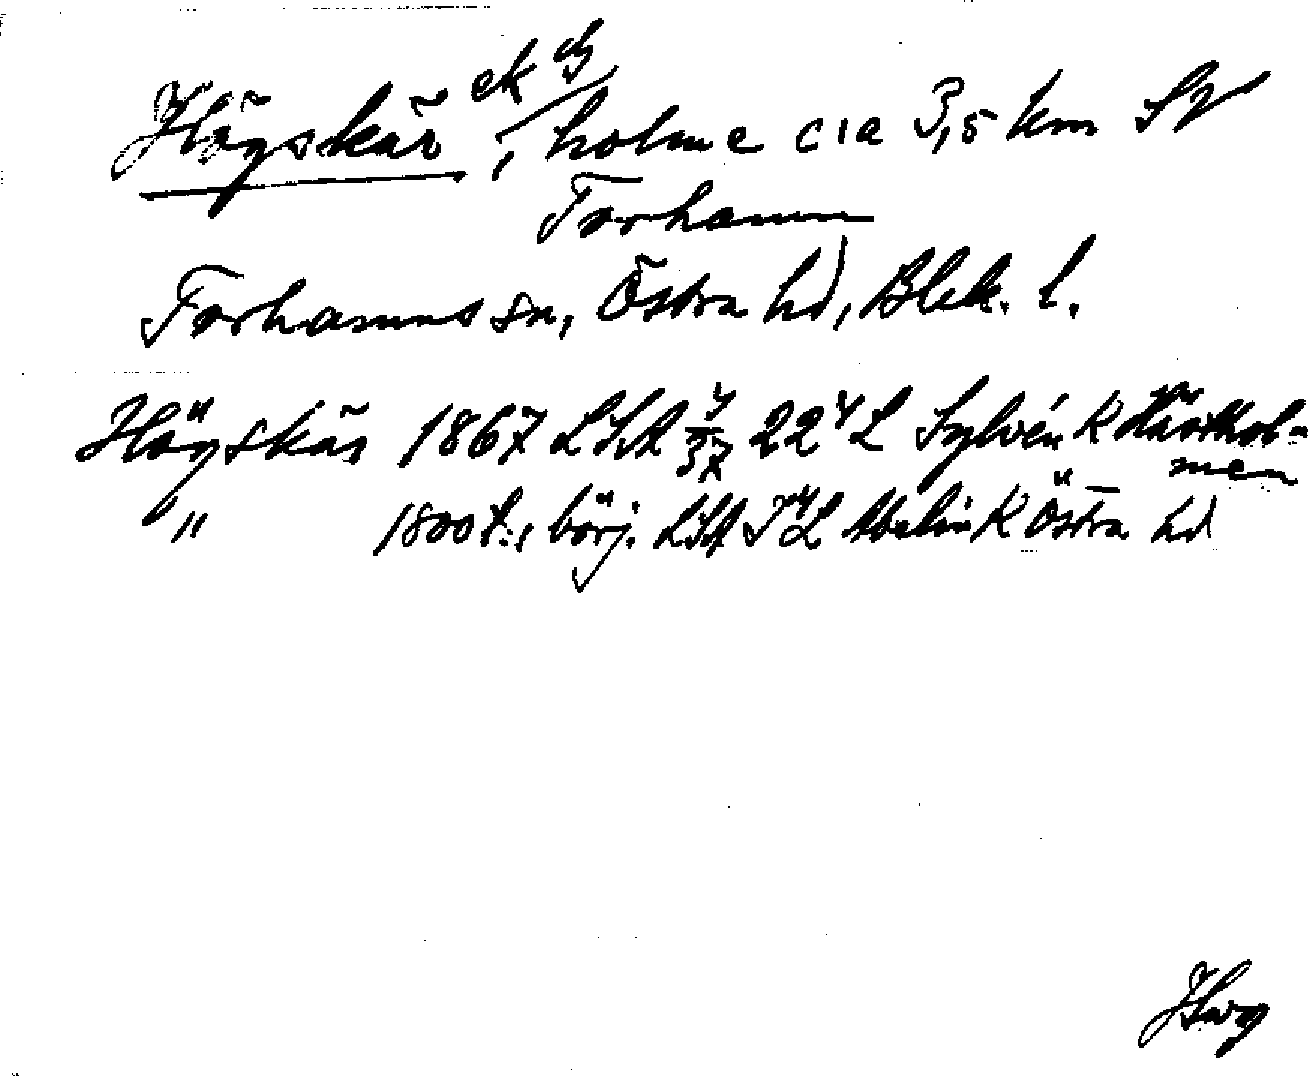 Högskär, ek holme cia 3,5 km SV
Torhamn
Torhamns sn, Östra hd, Blek. l.
Högskär 1867 LSA 22 L Sylvén K Hästhol-
men
" 1800 t., börj. LSA L K Östra hd